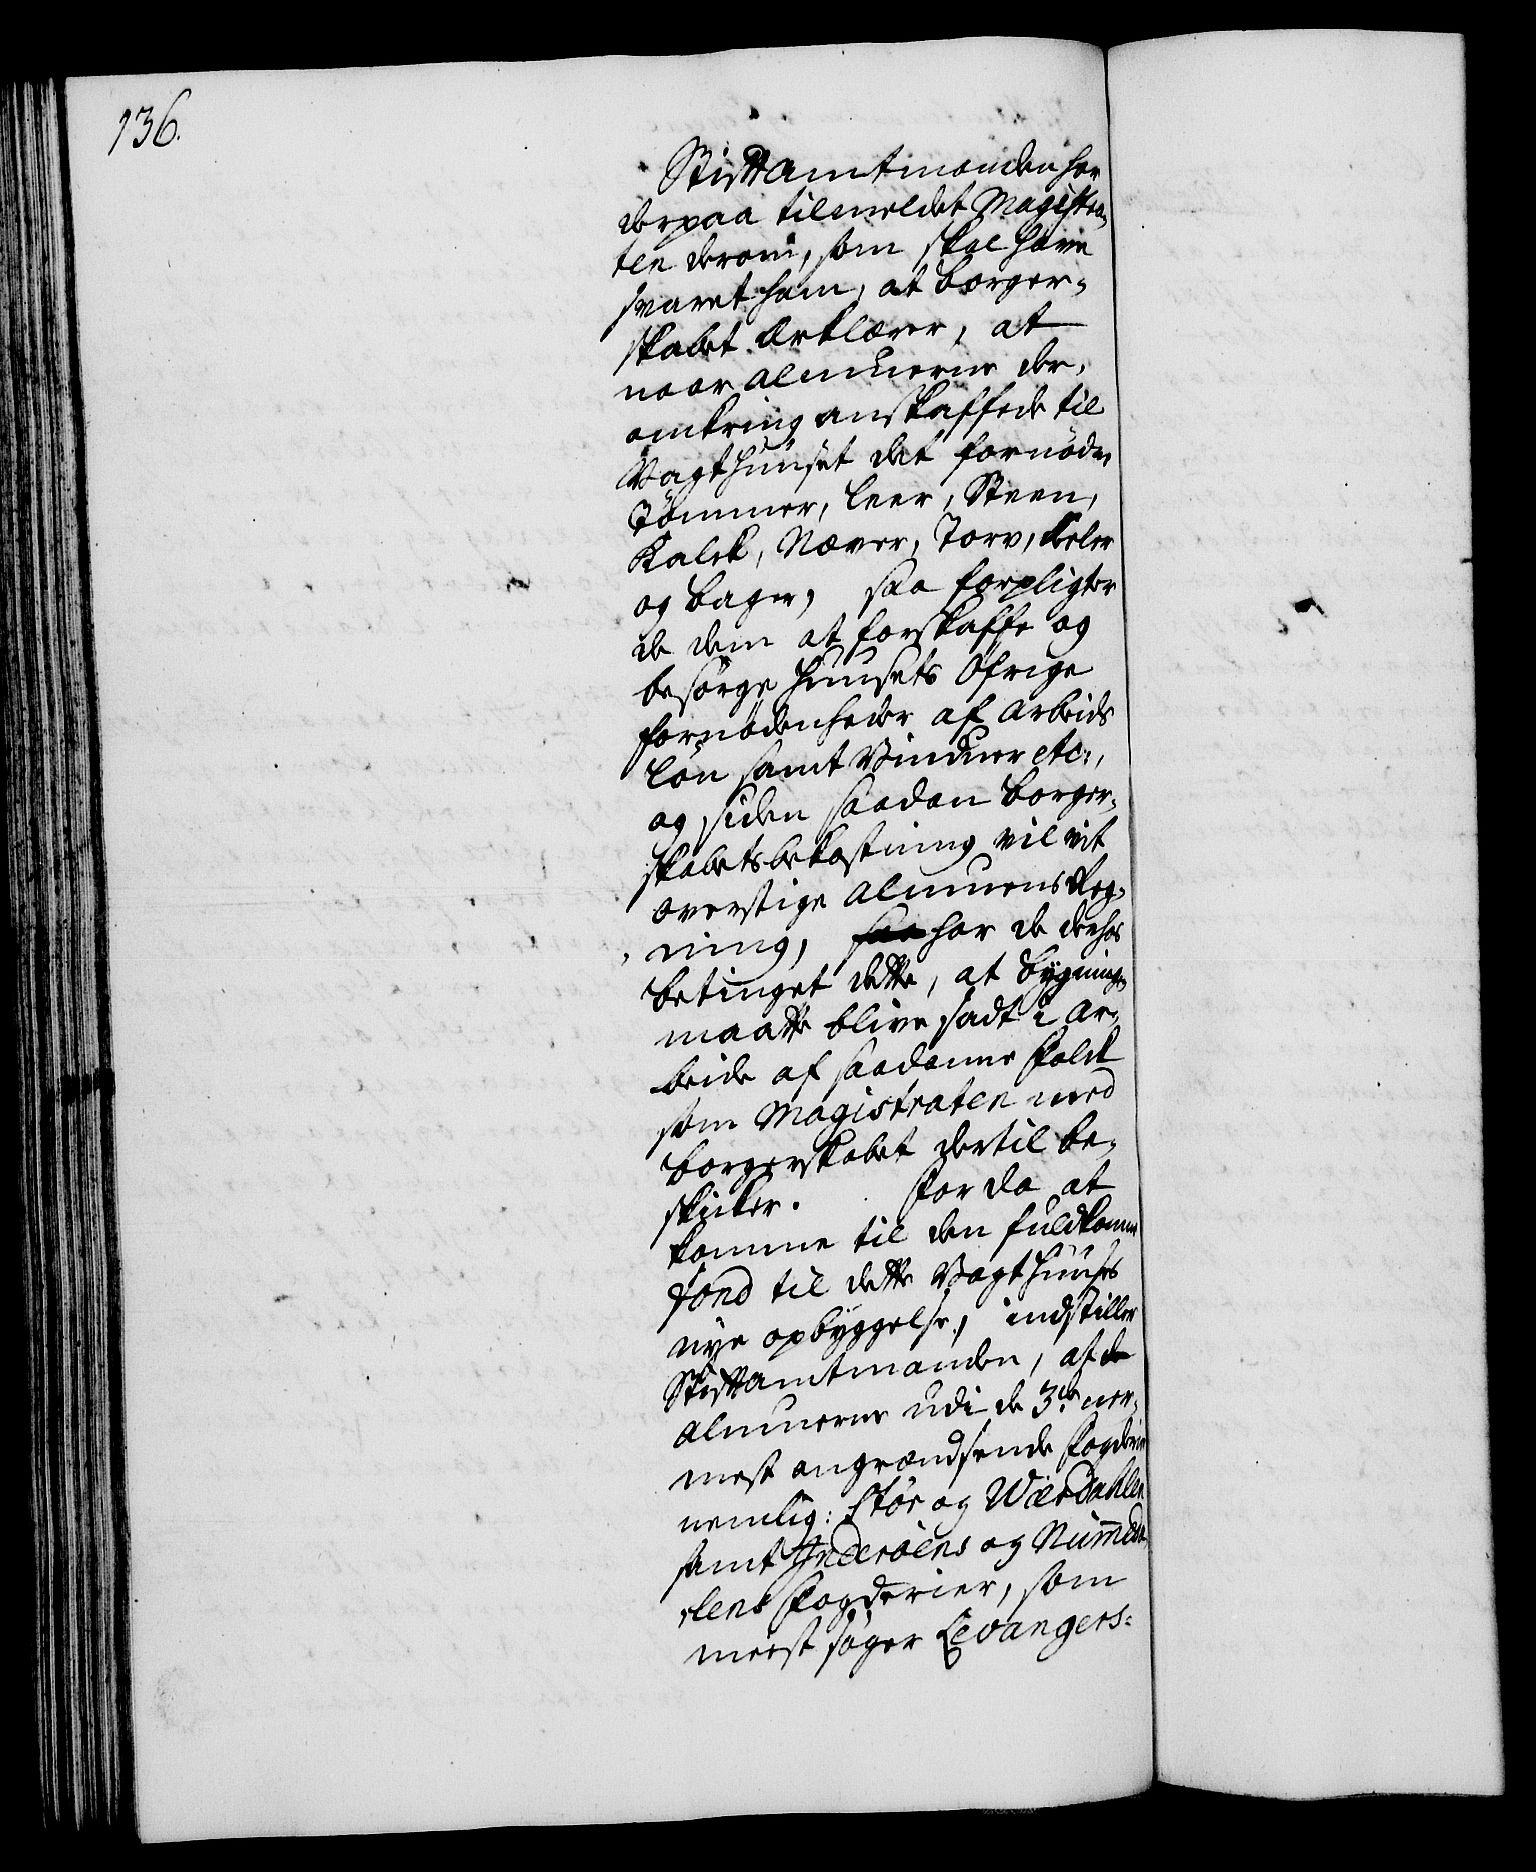 136.
Stiftamtmanden har
derpaa tilmeldet Magistra-
ten derom, som skal have
svaret ham, at borger-
skabet erklærer, at
naar almuerne der-
omkring anskaffede til
Vagthuuset det fornødne
Tømmer, leer, Steen,
Kalck, Næver, Torv, Deler
og bager, saa forpligter
de dem at forskaffe og
besørge Huusets øfrige
fornødenheder af arbeids
løn samt Vinduer etc:,
og siden saadan borger-
skabets bekostning vil vit
overstige almuens Reg-
ning, har de derhos
betinget dette, at bygningen
maatte blive sadt i ar-
beide af saadanne folck
som Magistraten med
borgerskabet dertil be-
skicker. For da at
komme til den fuldkomne
fond til dette Vagthuuses
nye opbyggelse, indstiller
Stiftamtmanden, at de
almuerne udi de 3de ner-
mest angrændsende fogderier
nemlig: Stør og Wærdahlen
samt Inderøens og Numeda-
lens fogderier, som
meest søger Levangers-